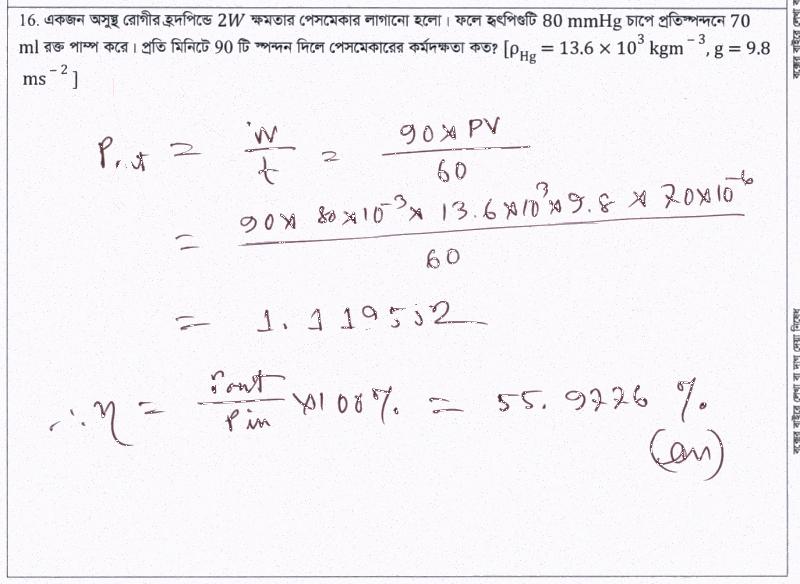 16. একজন অসুস্থ রোগীর হৃদপিন্ডে 2W ক্ষমতার পেসমেকার লাগানো হলো। ফলে হৃৎপিণ্ডটি 80 mmHg চাপে প্রতিস্পন্দনে 70
ml রক্ত পাম্প করে। প্রতি মিনিটে 90 টি স্পন্দন দিলে পেসমেকারের কর্মদক্ষতা কত? [ρ_Hg = 13.6 × 10³ kgm⁻³, g = 9.8
ms⁻²]
P_out = W/t = (90 × PV)/60
= (90 × 80 × 10⁻³ × 13.6 × 10³ × 9.8 × 70 × 10⁻⁶)/60
= 1.119552
∴ η = P_out/P_in × 100% = 55.9776 %.
(Ans)